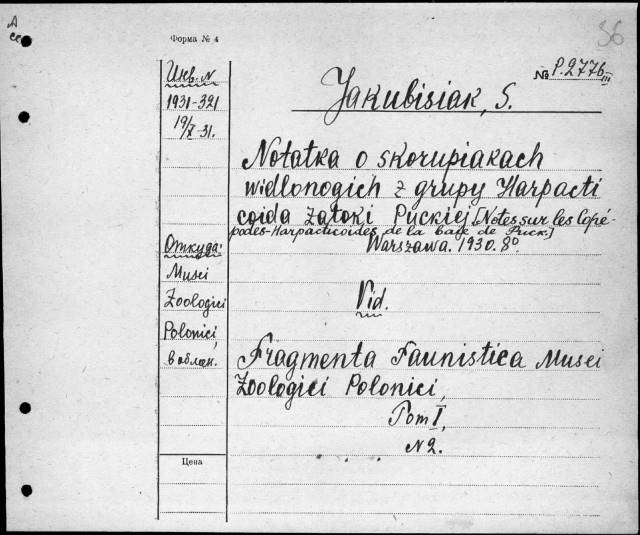 А
Форма № 4
36
Инв. N
1931-321
19/X-31.
№ P.2776 III
Jakubisiak, S.
Notatka o skorupiakach
widlonogich z grupy Harpacti
coida Zatoki Puckiej [Notes sur les Copé-
podes-Harpacticoides de la baie de Puck.]
Warszawa. 1930. 8°.
Откуда:
Musei
Zoologici
Polonici,
в облен.
Vid.
Fragmenta Faunistica Musei
Zoologici Polonici,
Tom I,
N 2.
Цена